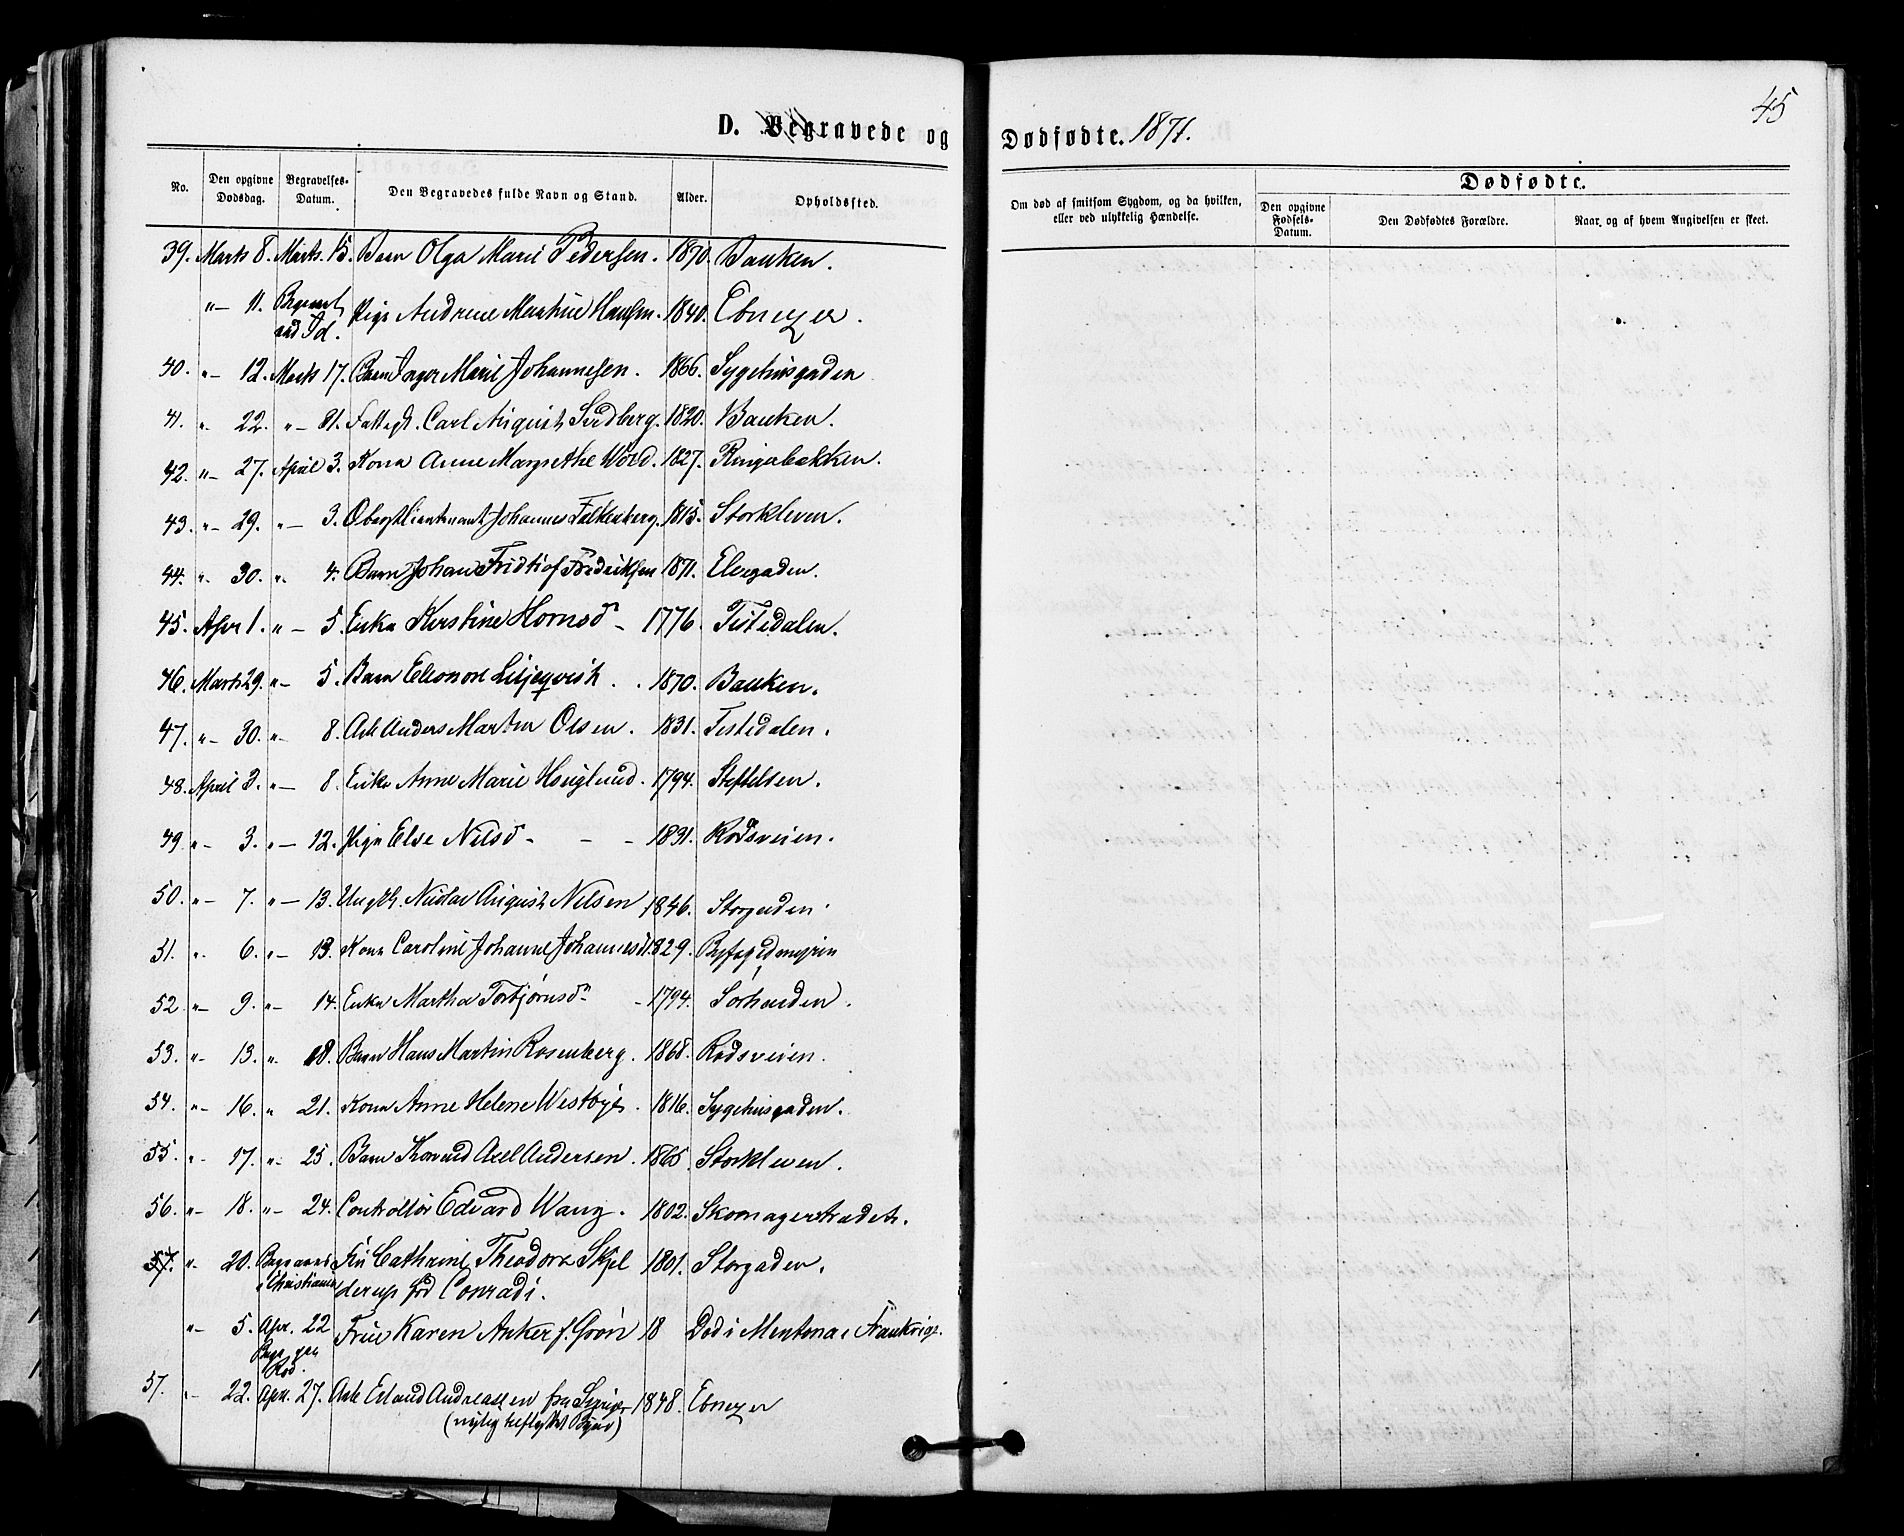 45
D. Begravede og Dødfødte. 1871.
No. Den opgivne Dødsdag. Begravelses-Datum. Den Begravedes fulde Navn og Stand. Alder. Opholdssted.
Om død af smitsom Sygdom, og da hvilken, eller ved ulykkelig Hændelse.
Dødfødte.
Den opgivne Fødsels-Datum. Den Dødfødtes Forældre. Naar og af hvem Angivelsen er skeet.
39. Marts 8. Marts 15. Barn Olga Marie Pedersen. 1870. Banken.
"– 11. Begravet ved Id. Pige Andrine Martine Hansen. 1840. Ebnezer.
40. "– 12. Marts 17. Barn Inger Marie Johannesen. 1866. Sygehusgaden
41. " 22. "– 31. Fattigl. Carl August Sundberg. 1820. Banken.
42. "– 27. April 3. Kona Anne Margrethe Wold. 1827. Ringerbakken.
43. "– 29. "– 3. Oberstlieutnant Johannes Falkenberg. 1815. Storkleven.
44. " 30. "– 4. Barn Johan Fridtiof Fredriksen 1871. Elvegaden.
45. Apr 1. "– 5. Enke Kirstine Hornsd – 1776. Tistedalen.
46. Marts 29. "– 5. Barn Elenore Liljeqvist. 1870. Banken.
47. "– 30. "– 8. Arb Anders Martin Olsen. 1831. Tistedalen.
48. April 3. "– 8. Enke Anne Marie Høuglund. 1794. Steffelsen.
49 "– 3. "– 12. Pige Else Nilsd – – – 1831. Rødsveien.
50. "– 7. "– 13. Ungk. Niclas August Nilsen 1846. Storgaden.
51. "– 6. "– 13. Kona Caroline Johanne Johannesd 1829. Byfogdmyren
52 "– 9. "– 14. Enke Martha Torbjørnsd – 1794. Sørhanden.
53. "– 13. " 18. Barn Hans Martin Rosenberg. 1868. Rødsveien.
54. "– 16. " 21. Kona Anne Helene Westbye. 1816. Sygehusgaden.
55. "– 17. "– 25. Barn Thorvald Axel Andersen. 1865. Storkleven.
56. "– 18. "– 24. Controllør Edvard Wang. 1802. Skomagerstrædet.
57. "– 20. Begravet i Christiania Fru Cathrine Theodora Skjel
derup fød Conradi. 1801. Storgaden.
"– 5. Apr. 22 Begr. paa Rød. Frue Karen Anker f. Grøn 18 Død i Mentona i Frankrige.
57. "– 22. Apr. 27. Arb Erland Andreassen fra Sverige 1848. Ebnezer
(nylig tilflyttet Byen)